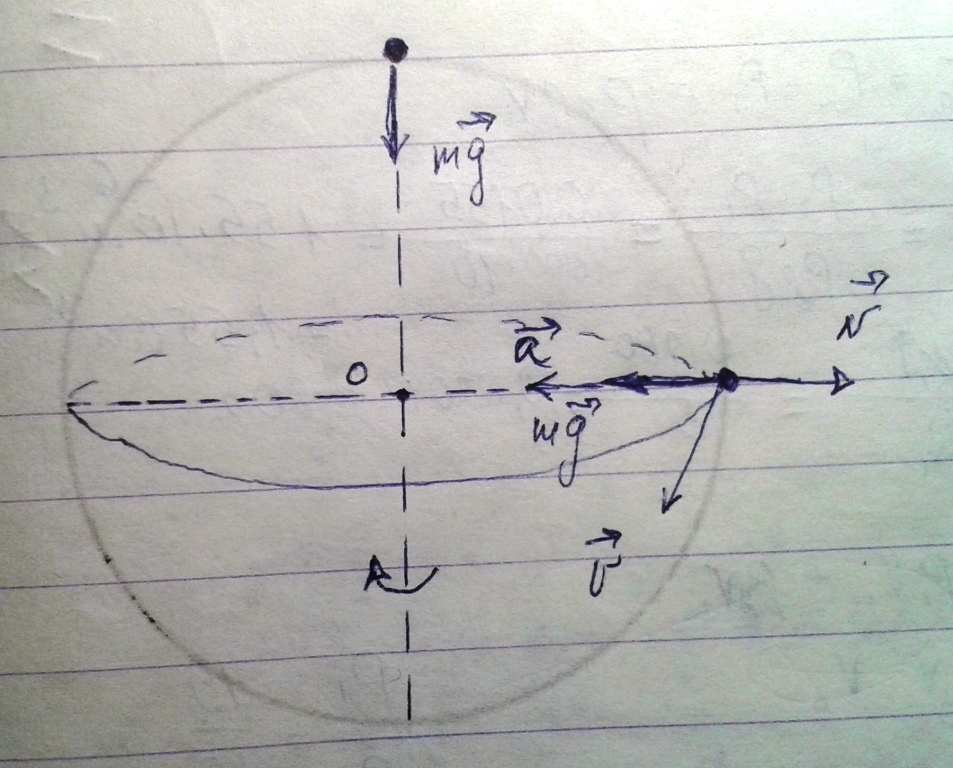 mg⃗
N⃗
a⃗
O
mg⃗
v⃗